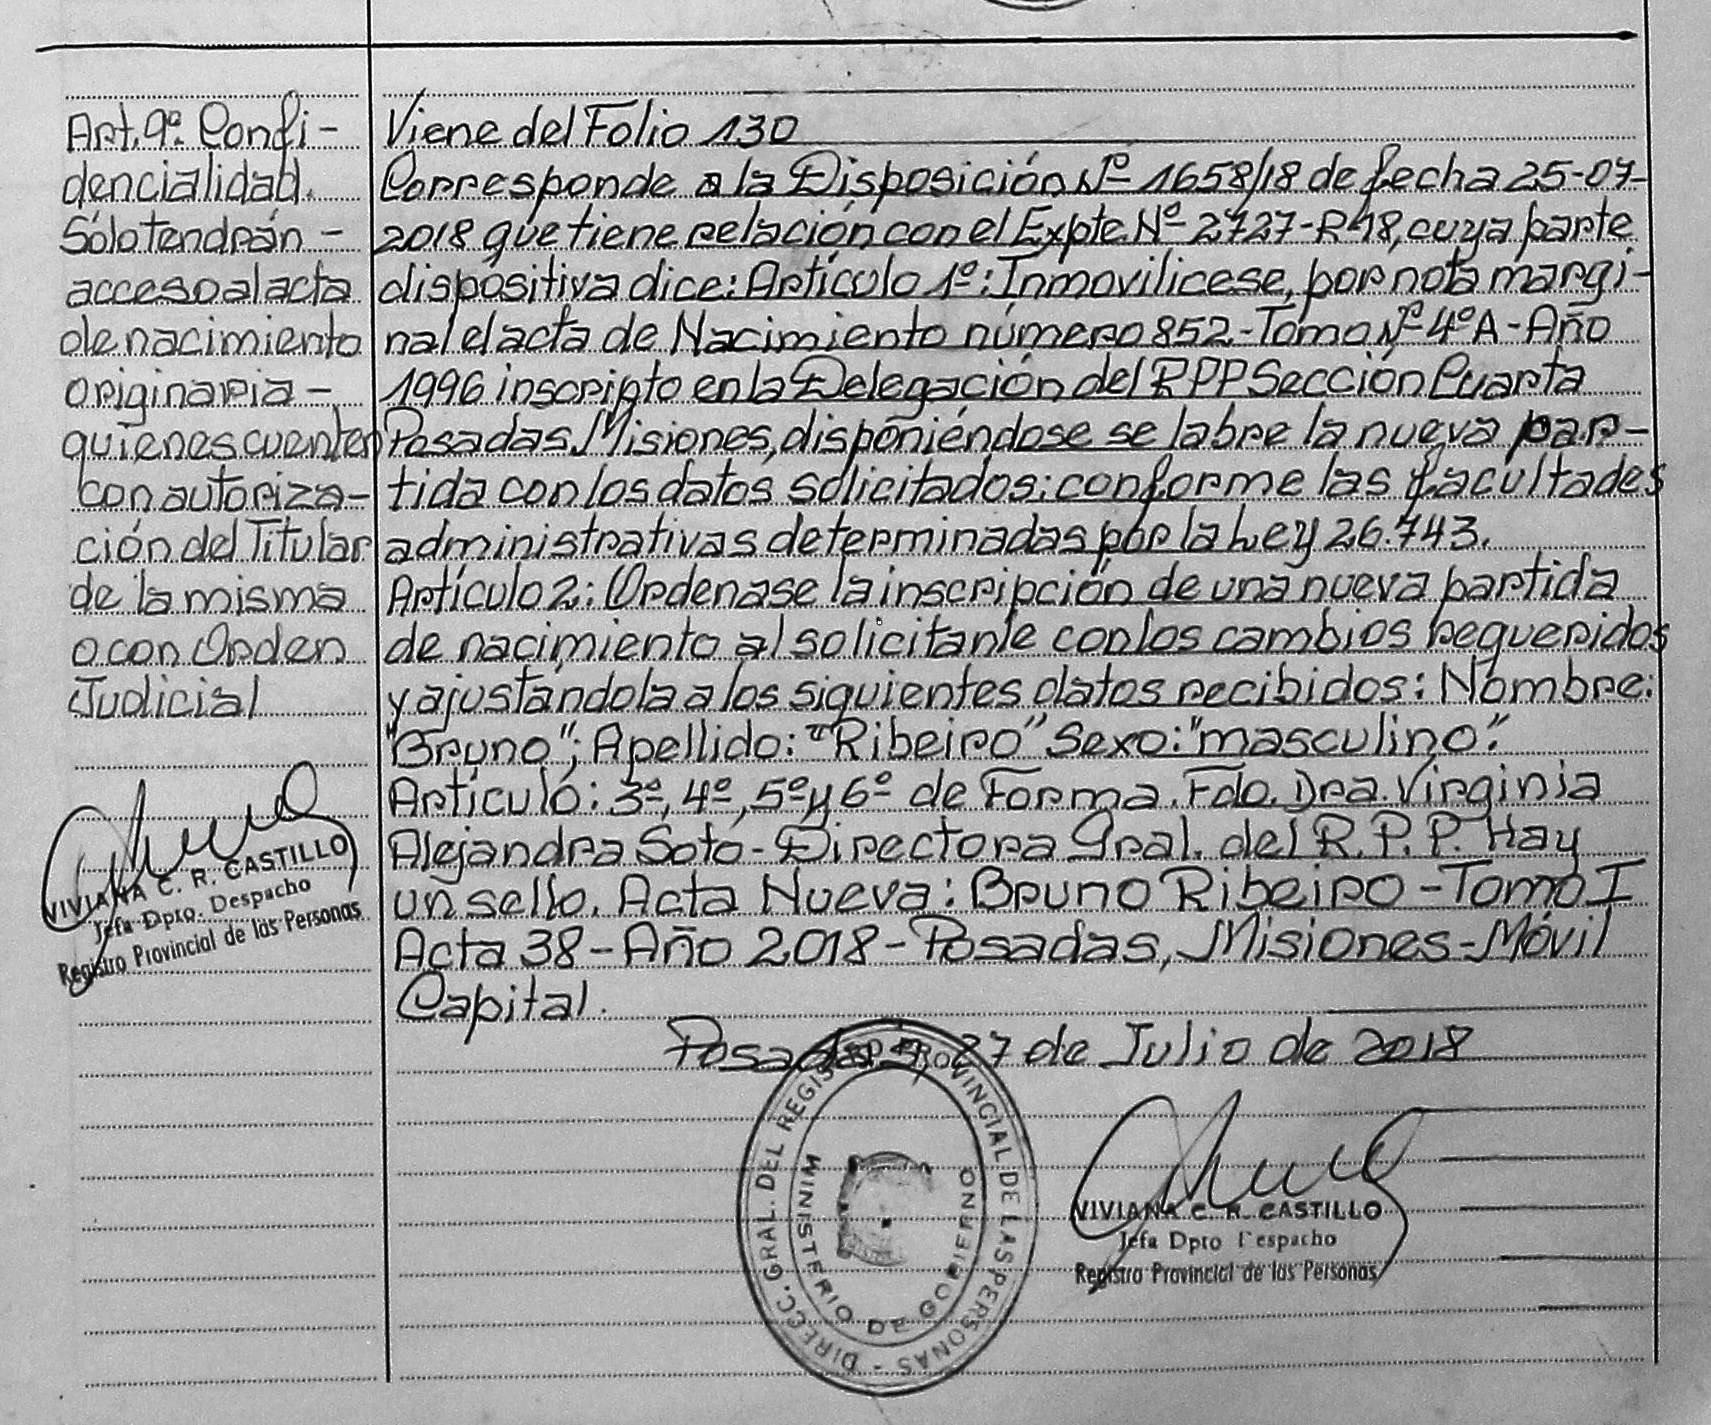 Art. 9º. Confi-
dencialidad.
Sólo tendrán-
acceso al acta
de nacimiento
originaria-
quienes cuenten
con autoriza-
ción del Titular
de la misma
o con Orden
Judicial
VIVIANA C. R. CASTILLO
Jefa Dpto. Despacho
Registro Provincial de las Personas
Viene del Folio 130
Corresponde a la Disposición Nº 1658/18 de fecha 25-07-
2018 que tiene relación con el Expte Nº 2727-R-18, cuya parte
dispositiva dice: Artículo 1º: Inmovilicese, por nota margi-
nal el acta de Nacimiento número 852-Tomo Nº 4º A-Año
1996 inscripto en la Delegación del RPP Sección Cuarta
Posadas, Misiones, disponiéndose se labre la nueva par-
tida con los datos solicitados; conforme las facultades
administrativas determinadas por la Ley 26.743.
Artículo 2: Ordenase la inscripción de una nueva partida
de nacimiento al solicitante con los cambios requeridos
y ajustándola a los siguientes datos recibidos: Nombre:
"Bruno"; Apellido: "Ribeiro" Sexo: "masculino".
Artículo: 3º, 4º, 5º y 6º de Forma. Fdo. Dra. Virginia
Alejandra Soto-Directora Gral. del R.P.P. Hay
un sello. Acta Nueva: Bruno Ribeiro-Tomo I
Acta 38-Año 2018-Posadas, Misiones-Móvil
Capital.
Posadas, 27 de Julio de 2018
DIRECC. GRAL. DEL REGISTRO PROVINCIAL DE LAS PERSONAS -
MINISTERIO DE GOBIERNO
VIVIANA C. R. CASTILLO
Jefa Dpto Despacho
Registro Provincial de las Personas